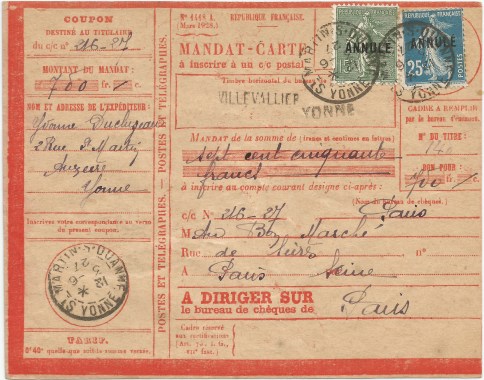 COUPON
DESTINÉ AU TITULAIRE
du c/c n° 216-27
MONTANT DU MANDAT:
700 fr. c.
NOM ET ADRESSE DE L'EXPÉDITEUR:
Yvonne
2 Rue P.
Yonne
Inscrivez votre correspondance au verso
du présent coupon.
MARTIN-S-OUANNE
YONNE
TARIF.
POSTES ET TÉLÉGRAPHES. — POSTES ET TÉLÉGRAPHES. — POSTES ET TÉLÉGRAPHES.
N° 1418 A.
RÉPUBLIQUE FRANÇAISE.
MANDAT-CARTE
à inscrire à un c/c postal
Timbre horizontal du bureau
VILLEVALLIER
YONNE
ANNULÉ
ANNULÉ
25
POSTES
MARTIN-S-OUANNE
YONNE
CADRE À REMPLIR
par le bureau d'émission.
N° DU TITRE:
BON POUR:
700 fr. c.
MANDAT de la somme de (francs et centimes en lettres)
sept cent cinquante
francs
à inscrire au compte courant désigné ci-après:
(Nom du bureau de chèques)
c/c N° 216-27 Paris
M Au Bon Marché
Rue de Sèvres n°
A Paris Seine
A DIRIGER SUR
le bureau de chèques de
Paris
Cadre réservé
aux rectifications